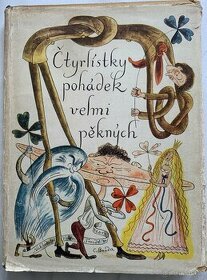 Čtyrlístky
pohádek
velmi
pěkných